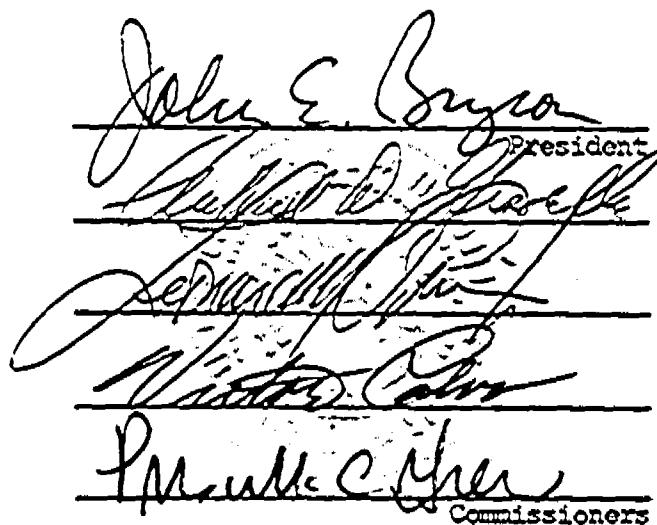 John E. Bryson
President
Leonard M.
Victor Calvo
Priscilla C. Grew
Commissioners